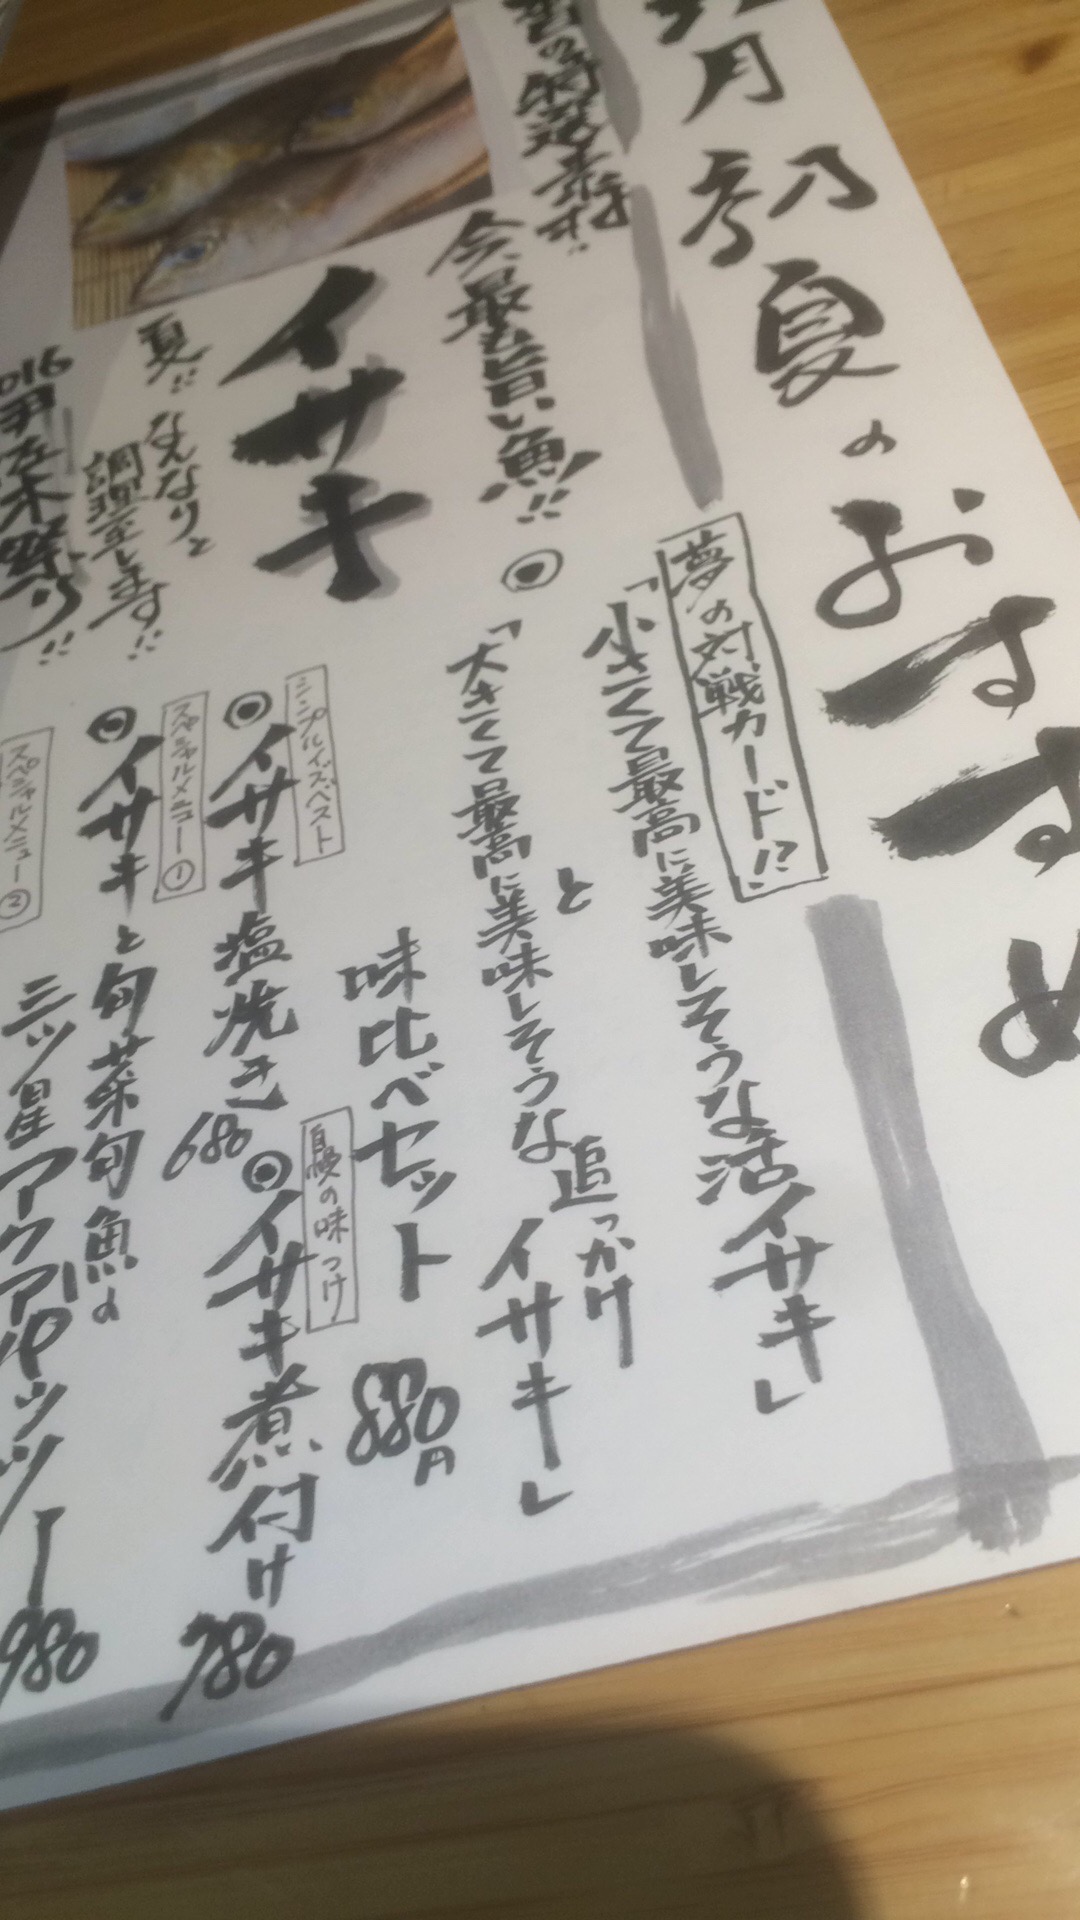 月初夏のおすすめ
夢の対戦カード!?
「小さくて最高に美味しそうな活イサキ」
と
「大きくて最高に美味しそうな追っかけイサキ」
味比べセット
880円
の特選素材!!
今、最も旨い魚!!
イサキ
夏!! なんなりと
調理致します!!
016
祭り!!
シンプルイズベスト
イサキ塩焼き
680
自慢の味つけ
イサキ煮付け
780
スペシャルメニュー①
イサキと旬菜旬魚の
三ツ星アクアパッツァー
980
スペシャルメニュー②